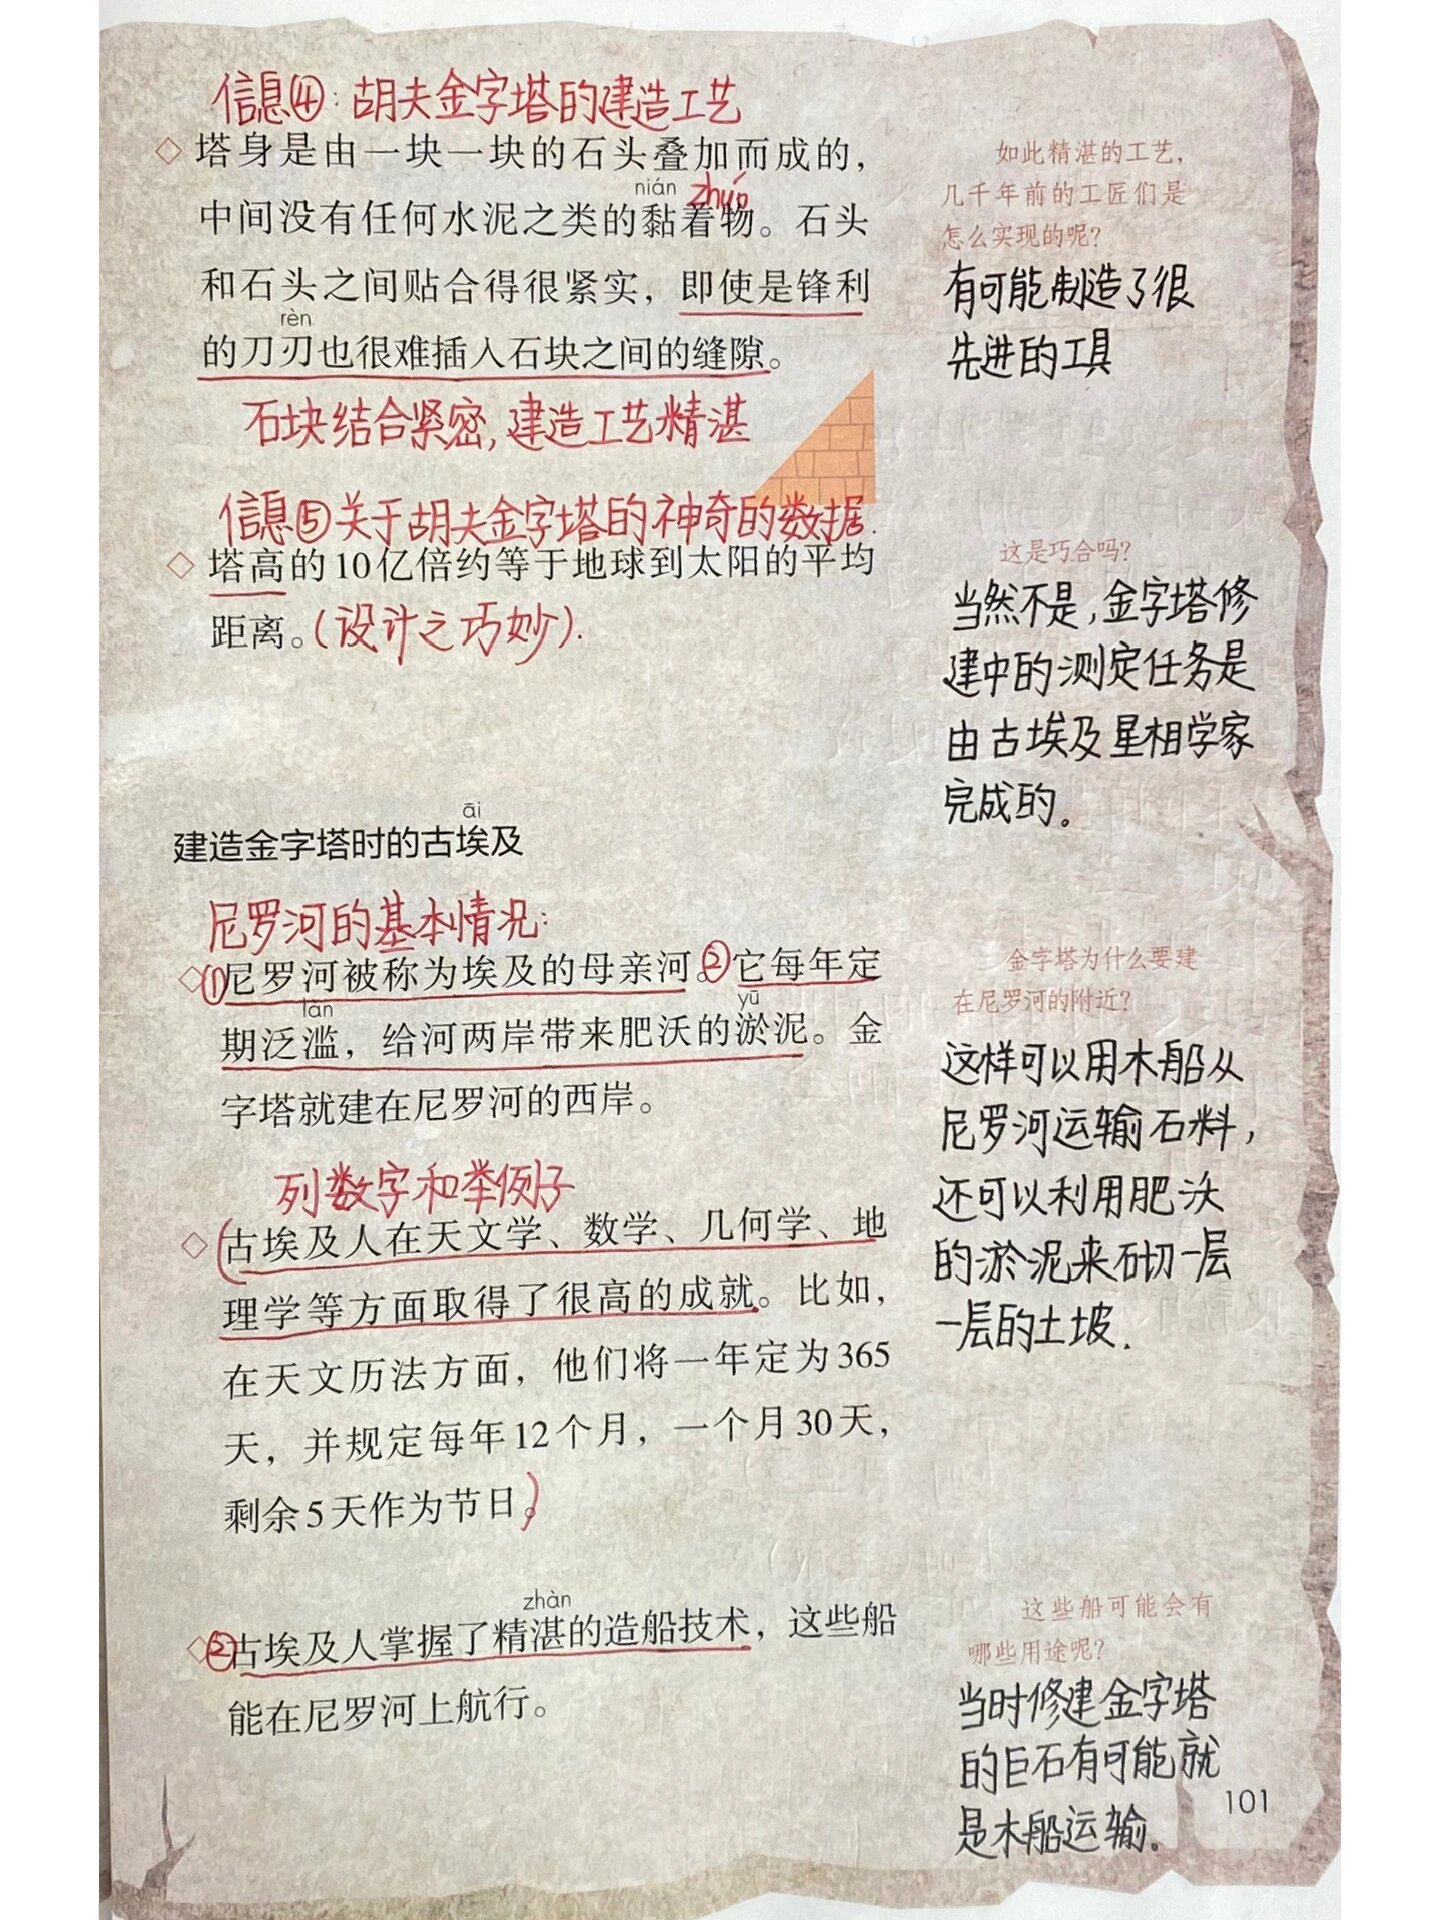 信息④：胡夫金字塔的建造工艺
◇塔身是由一块一块的石头叠加而成的，
nián zhuó
中间没有任何水泥之类的黏着物。石头
和石头之间贴合得很紧实，即使是锋利
rèn
的刀刃也很难插入石块之间的缝隙。
石块结合紧密，建造工艺精湛
如此精湛的工艺，
几千年前的工匠们是
怎么实现的呢？
有可能制造了很
先进的工具
信息⑤关于胡夫金字塔的神奇的数据.
◇塔高的10亿倍约等于地球到太阳的平均
距离。(设计之巧妙).
这是巧合吗？
当然不是，金字塔修
建中的测定任务是
由古埃及星相学家
完成的。
āi
建造金字塔时的古埃及
尼罗河的基本情况：
◇①尼罗河被称为埃及的母亲河。②它每年定
làn yū
期泛滥，给河两岸带来肥沃的淤泥。金
字塔就建在尼罗河的西岸。
金字塔为什么要建
在尼罗河的附近？
这样可以用木船从
尼罗河运输石料，
还可以利用肥沃
的淤泥来砌一层
一层的土坡.
列数字和举例子
◇(古埃及人在天文学、数学、几何学、地
理学等方面取得了很高的成就。比如，
在天文历法方面，他们将一年定为365
天，并规定每年12个月，一个月30天，
剩余5天作为节日。)
zhàn
◇②古埃及人掌握了精湛的造船技术，这些船
能在尼罗河上航行。
这些船可能会有
哪些用途呢？
当时修建金字塔
的巨石有可能就
是木船运输。
101